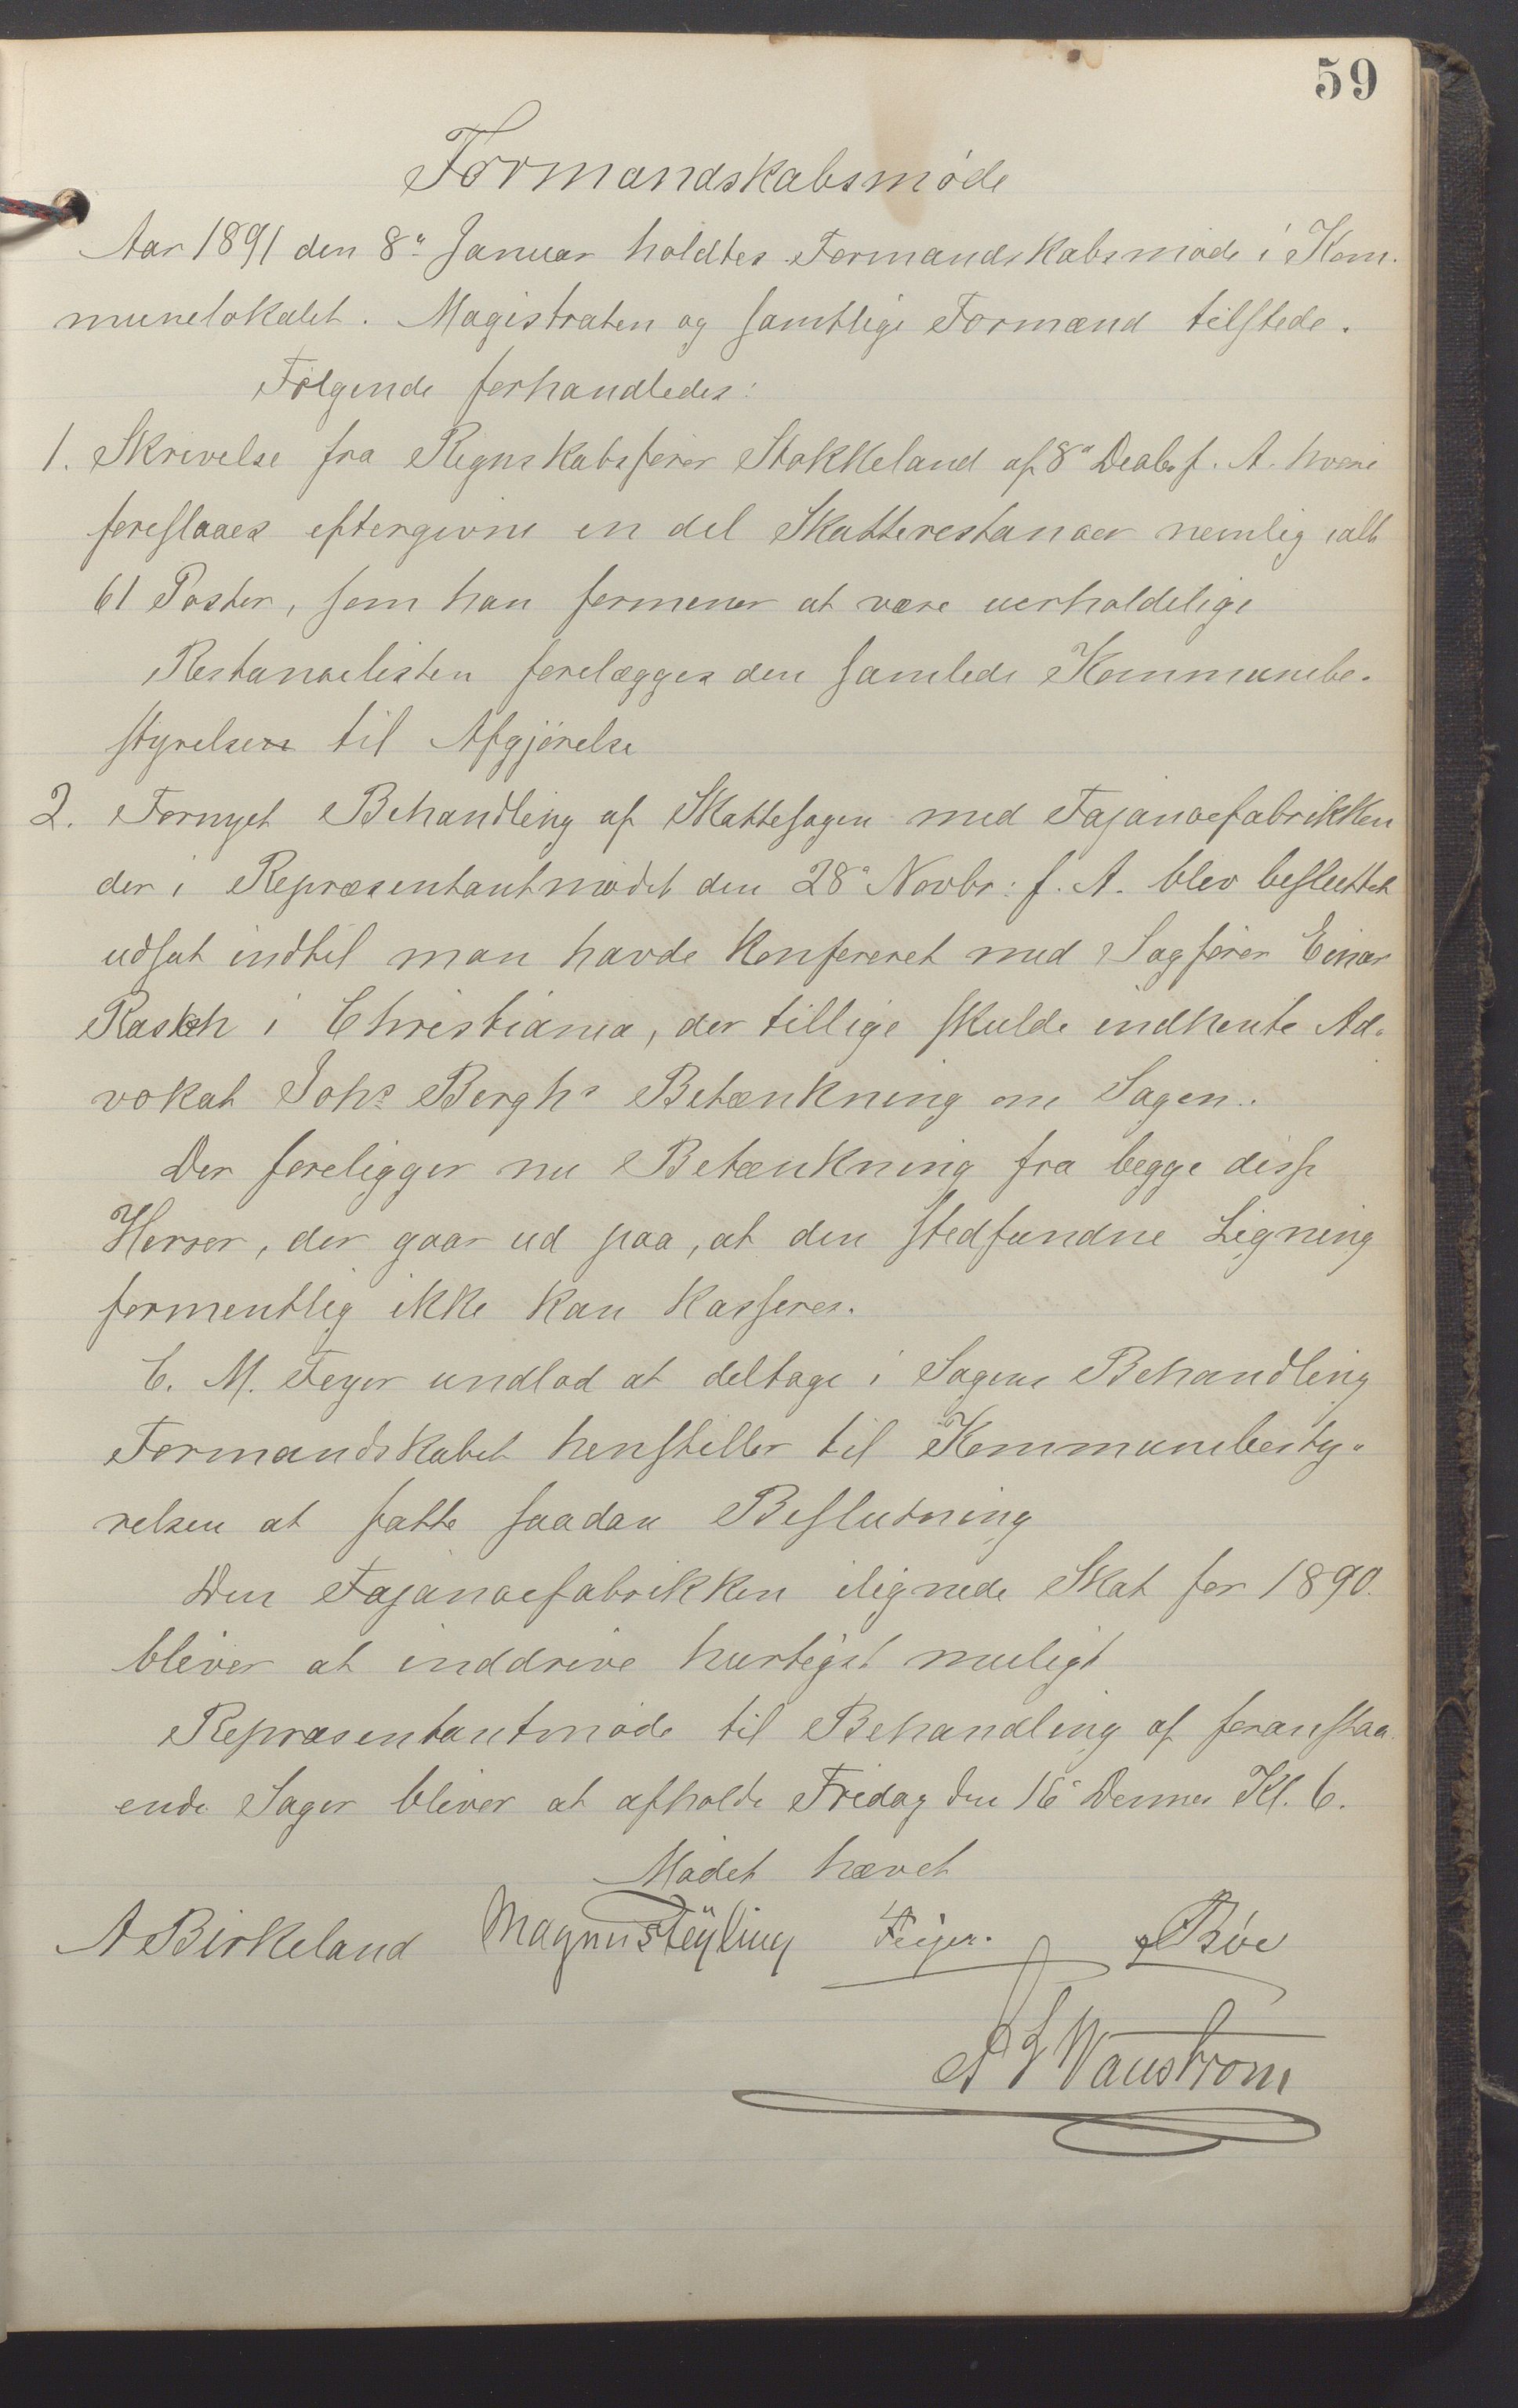 59
Formandskabsmøde
Aar 1891 den 8" Januar holdtes Formandskabsmøde i Kom-
munelokalet. Magistraten og samtlige Formænd tilstede.
Følgende forhandledes:
1. Skrivelse fra Regnskabsfører Stokkeland af 8" Decbr f. A. hvori
foreslaaes eftergivne en del Skatterestancer nemlig ialt
61 Poster, som han formener at være uerholdelige
Restancelisten forelægges den samlede Kommunebe-
styrelse til Afgjørelse
2. Fornyet Behandling af Skattesagen med Fajancefabrikken
der i Repræsentantmødet den 28" Novbr: f. A. blev besluttet
udsat indtil man havde konfereret med Sagfører Einar
Rasch i Christiania, der tillige skulde indhente Ad-
vokat Johs Berghs Betænkning om Sagen.
Der foreligger nu Betænkning fra begge disse
Herrer, der gaar ud paa, at den stedfundne Ligning
formentlig ikke kan kasseres.
C. M. Feyer undlod at deltage i Sagens Behandling
Formandskabet henstiller til Kommunebesty-
relsen at fatte saadan Beslutning
Den Fajancefabrikken ilignede Skat for 1890
bliver at inddrive hurtigst muligt
Repræsentantmøde til Behandling af foranstaa-
ende Sager bliver at afholde Fredag den 16" Dennes Kl. 6.
Mødet hævet
A Birkeland Magnus Feyling Feijer. Bøe
Wanstrom